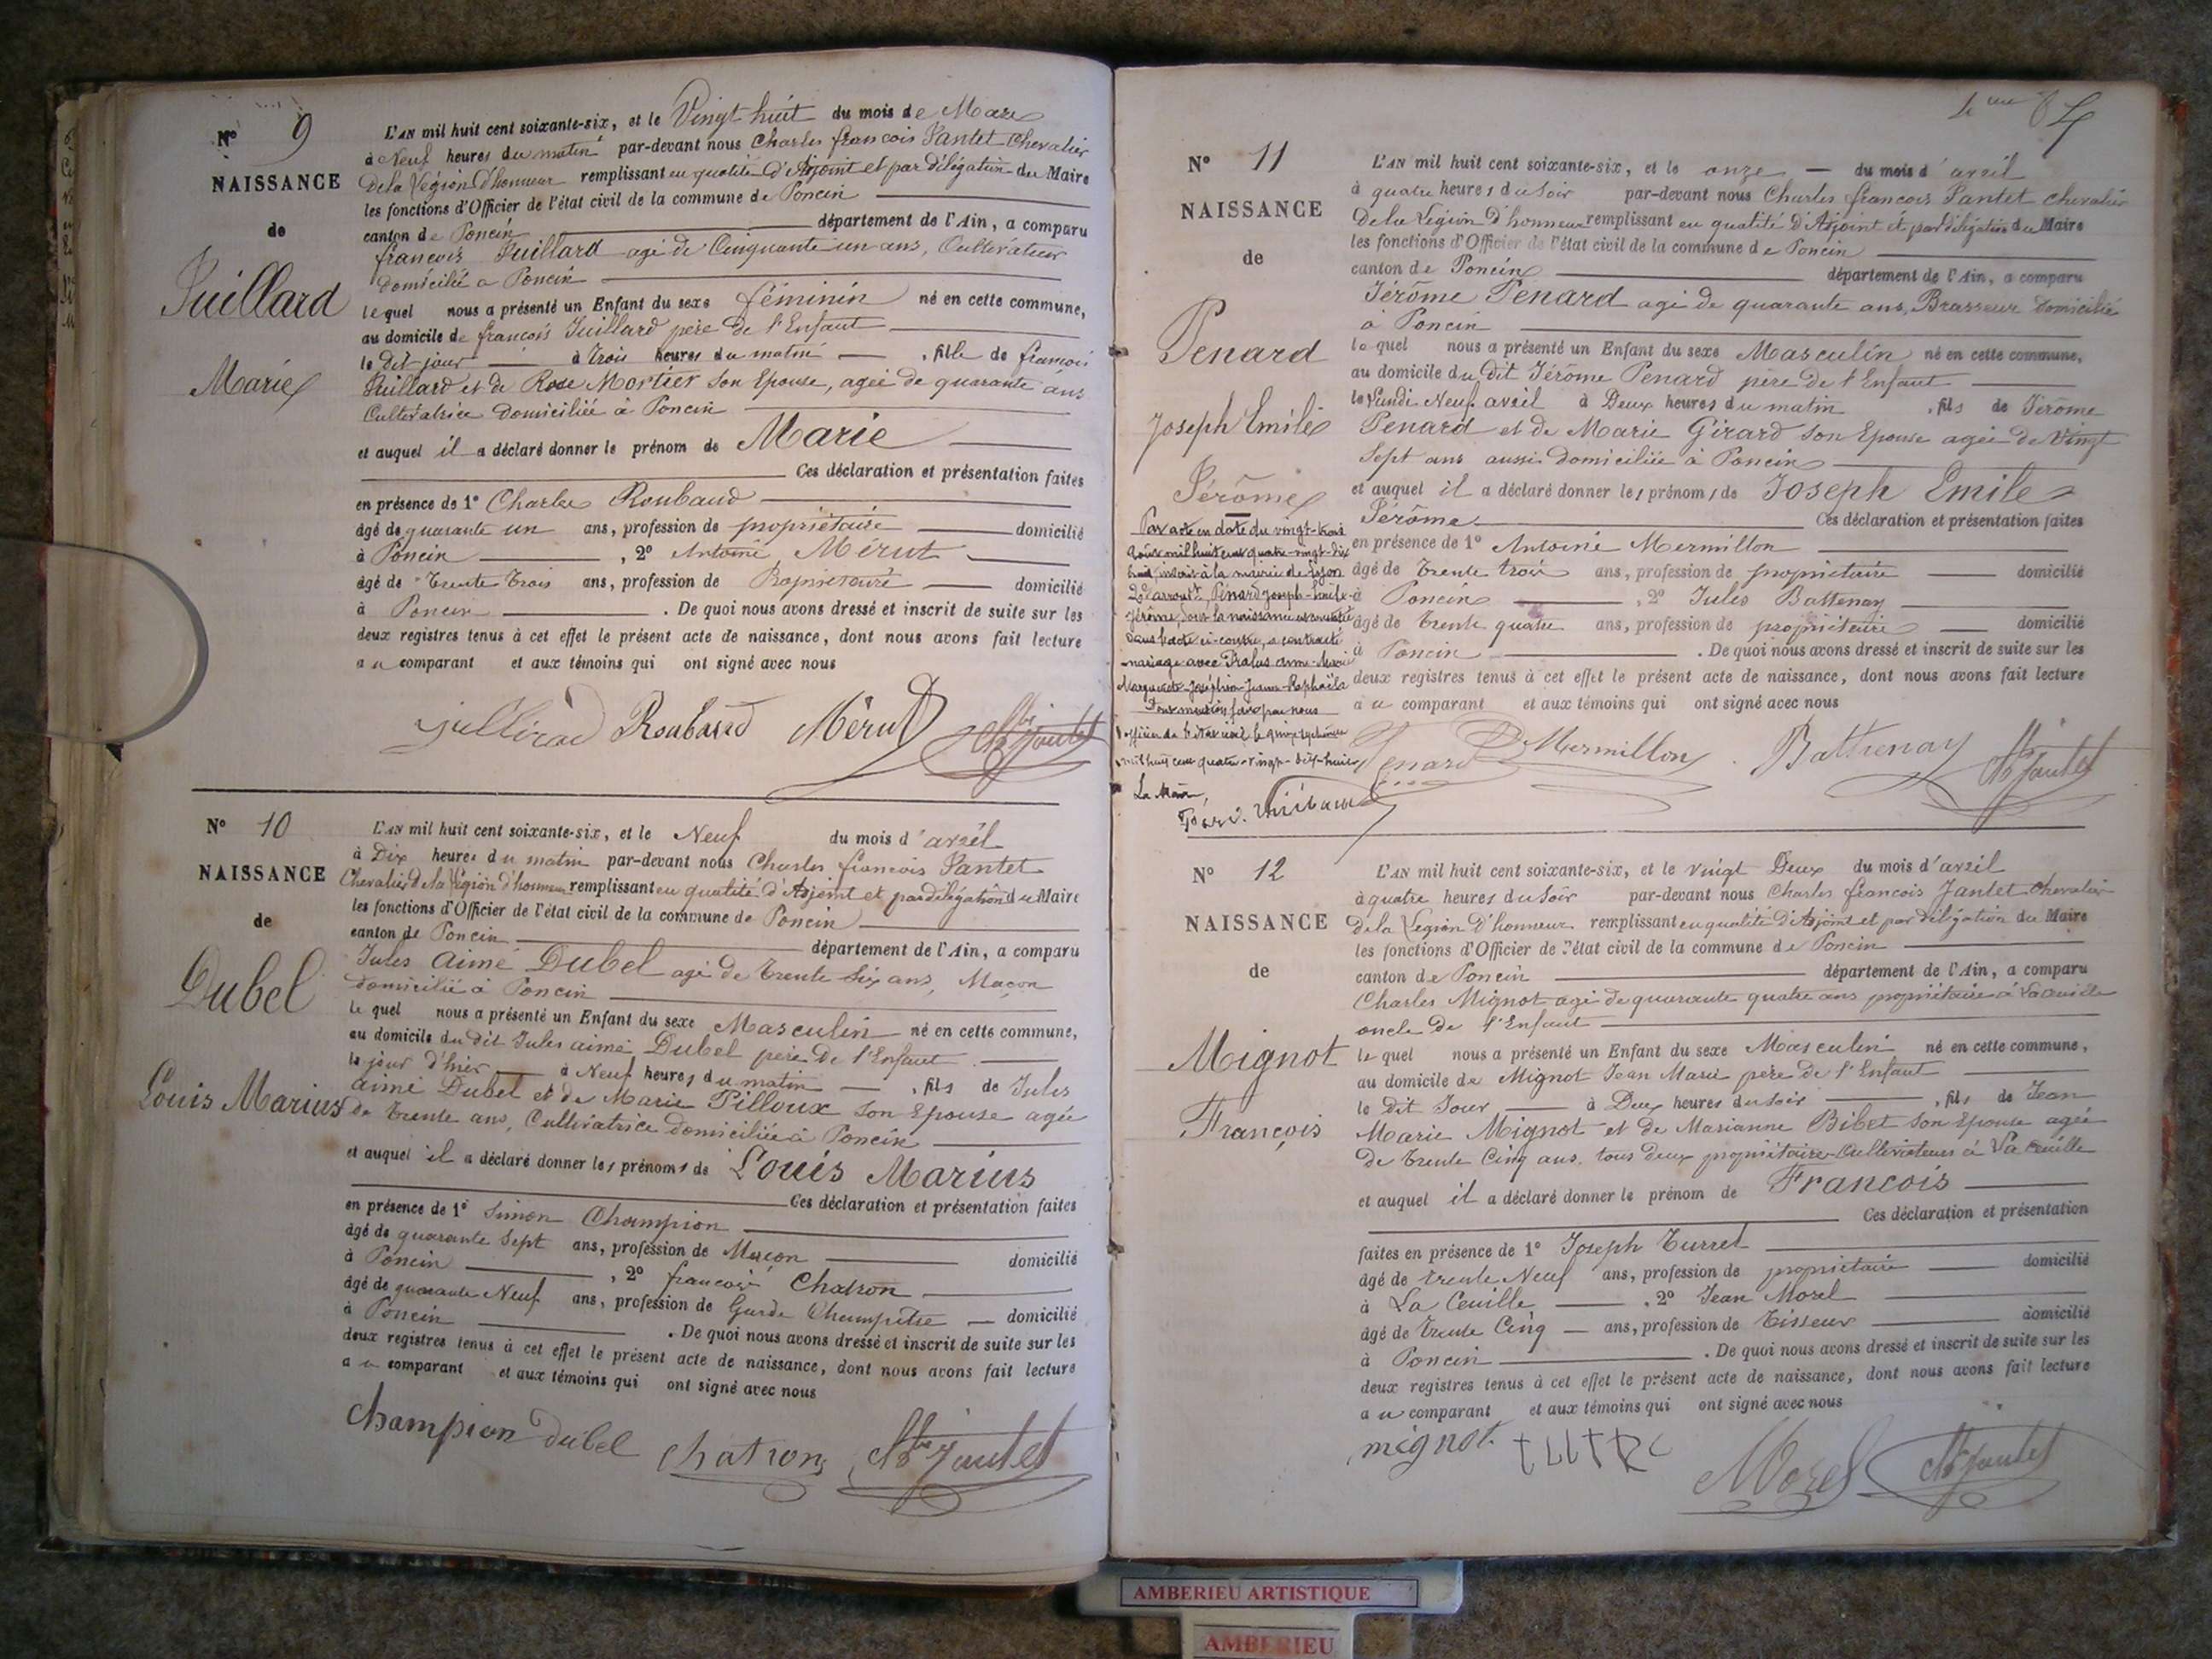 N° 9
NAISSANCE
de
Juillard
Marie
L'AN mil huit cent soixante-six, et le Vingt huit du mois de Mars
à Neuf heures du matin par-devant nous Charles francois Jantet Chevalier
De la Légion D'honneur remplissant en qualité d'Adjoint et par délégation du Maire
les fonctions d'Officier de l'état civil de la commune de Poncin
canton de Poncin département de l'Ain, a comparu
francois Juillard agé de Cinquante un ans, Cultivateur
domicilié a Poncin
lequel nous a présenté un Enfant du sexe féminin né en cette commune,
au domicile de francois Juillard père de l'Enfant
le dit jour à trois heures du matin, fille de francois
Juillard et de Rose Mortier son Epouse, agée de quarante ans
Cultivatrice domiciliée à Poncin
et auquel il a déclaré donner le prénom de Marie
Ces déclaration et présentation faites
en présence de 1° Charles Roubaud
âgé de quarante un ans, profession de propriétaire domicilié
à Poncin, 2° Antoine Mérut
âgé de Trente trois ans, profession de Propriétaire domicilié
à Poncin. De quoi nous avons dressé et inscrit de suite sur les
deux registres tenus à cet effet le présent acte de naissance, dont nous avons fait lecture
au comparant et aux témoins qui ont signé avec nous
Roubaud Mérut Jantet
N° 10
NAISSANCE
de
Dubel
Louis Marius
L'AN mil huit cent soixante-six, et le Neuf du mois d'avril
à Dix heures du matin par-devant nous Charles francois Jantet
Chevalier de la Légion d'honneur remplissant en qualité d'Adjoint et par délégation du Maire
les fonctions d'Officier de l'état civil de la commune de Poncin
canton de Poncin département de l'Ain, a comparu
Jules aimé Dubel agé de trente six ans, Maçon
domicilié à Poncin
le quel nous a présenté un Enfant du sexe Masculin né en cette commune,
au domicile du dit Jules aimé Dubel père de l'Enfant
le jour d'hier à Neuf heures du matin, fils de Jules
aimé Dubel et de Marie Pilloux son Epouse agée
de trente ans, Cultivatrice domiciliée à Poncin
et auquel il a déclaré donner les prénoms de Louis Marius
Ces déclaration et présentation faites
en présence de 1° Simon Champion
âgé de quarante sept ans, profession de Maçon domicilié
à Poncin, 2° francois Chatron
âgé de quarante Neuf ans, profession de Garde Champêtre domicilié
à Poncin. De quoi nous avons dressé et inscrit de suite sur les
deux registres tenus à cet effet le présent acte de naissance, dont nous avons fait lecture
au comparant et aux témoins qui ont signé avec nous
Champion Dubel Chatron Jantet
N° 11
NAISSANCE
de
Penard
Joseph Emile
Jérôme
Par acte en date du vingt-trois
août mil huit cent quatre-vingt-dix
huit, inscrit à la mairie de Lyon
2e arrondt, Penard Joseph-Emile-
Jérôme, dont la naissance est constatée
dans l'acte ci-contre, a contracté
mariage avec Pralus Anne-Marie
Marguerite-Joséphine-Jeanne-Raphaële
Pour mention faite par nous
officier de l'état civil le quinze septembre
mil huit cent quatre-vingt-dix-huit
Le Maire,
L'AN mil huit cent soixante-six, et le onze du mois d'avril
à quatre heures du soir par-devant nous Charles francois Jantet chevalier
De la Légion d'honneur remplissant en qualité d'Adjoint et par délégation du Maire
les fonctions d'Officier de l'état civil de la commune de Poncin
canton de Poncin département de l'Ain, a comparu
Jérôme Penard agé de quarante ans, Brasseur domicilié
à Poncin
le quel nous a présenté un Enfant du sexe Masculin né en cette commune,
au domicile du dit Jérôme Penard père de l'Enfant
le Lundi Neuf avril à Deux heures du matin, fils de Jérôme
Penard et de Marie Girard son Epouse agée de Vingt
Sept ans aussi domiciliée à Poncin
et auquel il a déclaré donner les prénoms de Joseph Emile
Jérôme Ces déclaration et présentation faites
en présence de 1° Antoine Mermillon
âgé de trente trois ans, profession de propriétaire domicilié
à Poncin, 2° Jules Battenay
âgé de trente quatre ans, profession de propriétaire domicilié
à Poncin. De quoi nous avons dressé et inscrit de suite sur les
deux registres tenus à cet effet le présent acte de naissance, dont nous avons fait lecture
au comparant et aux témoins qui ont signé avec nous
Penard Mermillon Jantet
N° 12
NAISSANCE
de
Mignot
François
L'AN mil huit cent soixante-six, et le vingt Deux du mois d'avril
à quatre heures du soir par-devant nous Charles francois Jantet chevalier
de la Légion D'honneur remplissant en qualité d'Adjoint et par délégation du Maire
les fonctions d'Officier de l'état civil de la commune de Poncin
canton de Poncin département de l'Ain, a comparu
Charles Mignot agé de quarante quatre ans propriétaire à La Cueille
oncle de l'Enfant
le quel nous a présenté un Enfant du sexe Masculin né en cette commune,
au domicile de Mignot Jean Marie père de l'Enfant
le dit Jour à Deux heures du soir, fils de Jean
Marie Mignot et de Marianne Bibet son Epouse agée
de trente Cinq ans. tous deux propriétaires-Cultivateurs à La Cueille
et auquel il a déclaré donner le prénom de Francois
Ces déclaration et présentation
faites en présence de 1° Joseph Turrel
âgé de trente Neuf ans, profession de propriétaire domicilié
à La Ceuille, 2° Jean Morel
âgé de trente Cinq ans, profession de Tisseur domicilié
à Poncin. De quoi nous avons dressé et inscrit de suite sur les
deux registres tenus à cet effet le présent acte de naissance, dont nous avons fait lecture
au comparant et aux témoins qui ont signé avec nous
mignot Morel Jantet
AMBERIEU ARTISTIQUE
AMBERIEU